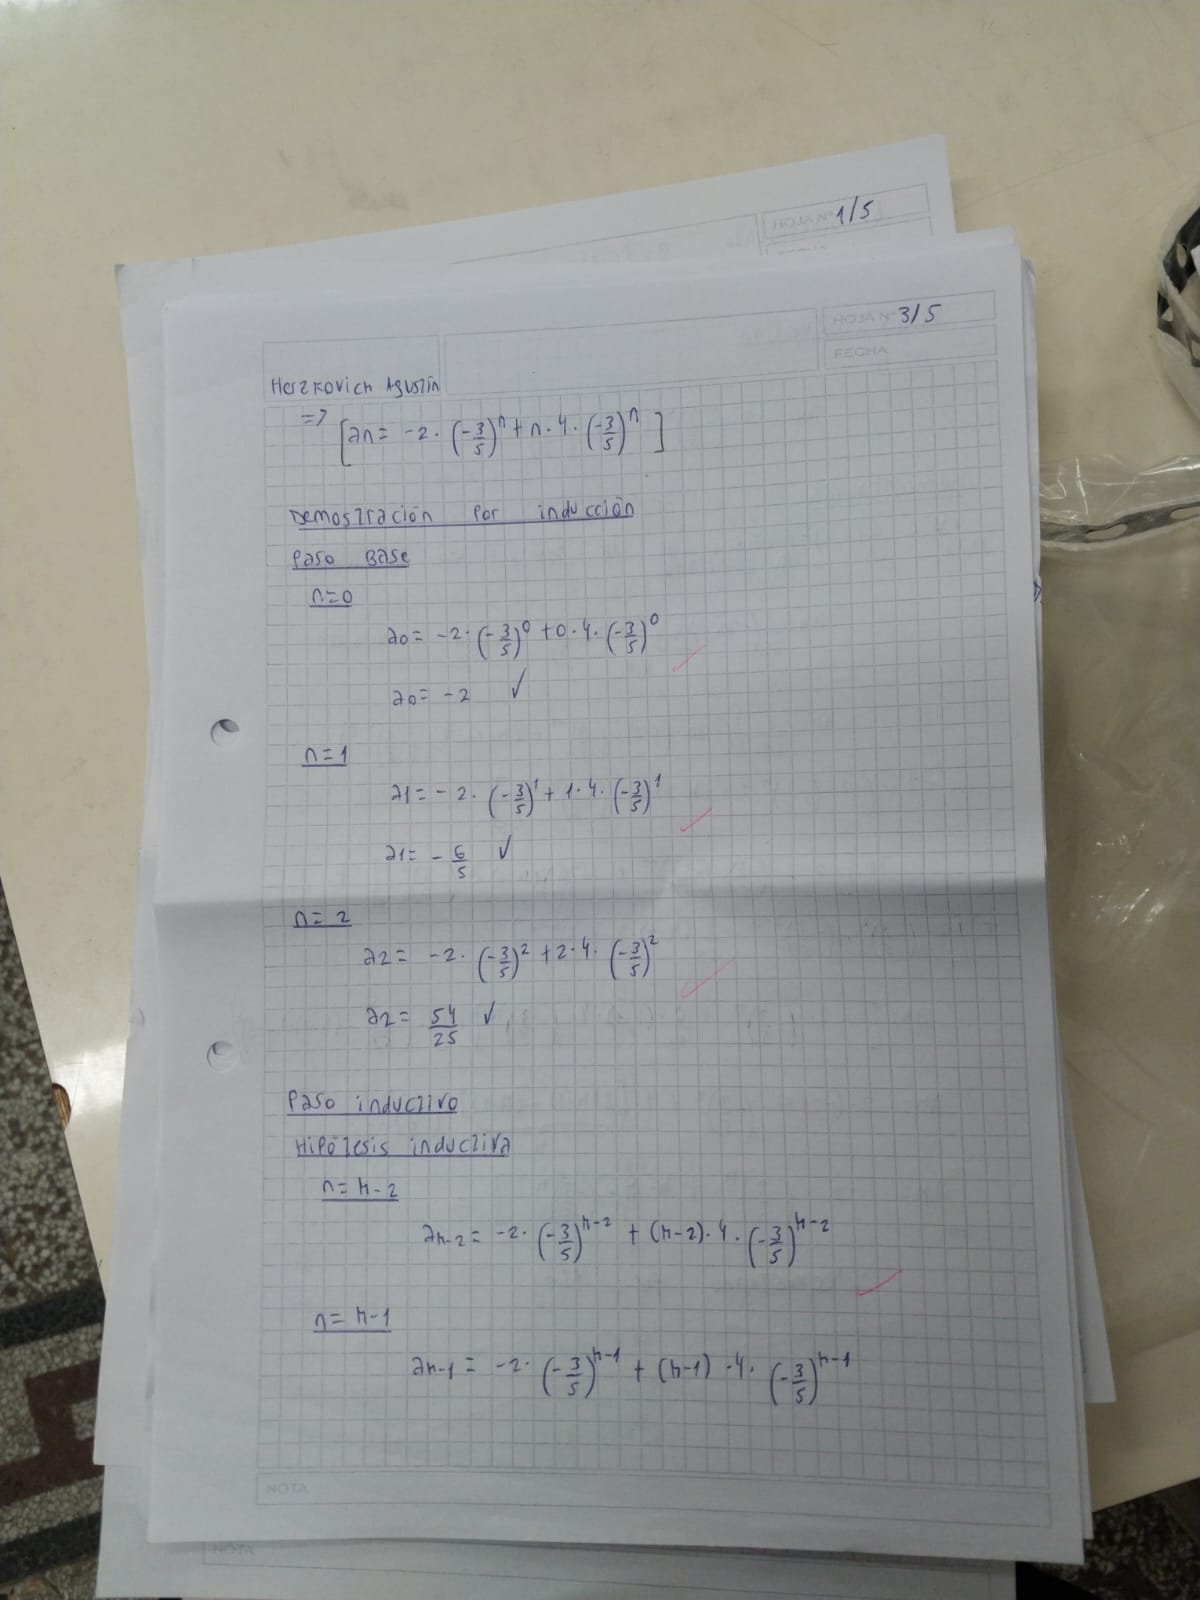 HOJA N° 1/5
HOJA N° 3/5
FECHA
Herzkovich Agustín
=> [an = -2 · (-3/5)^n + n · 4 · (-3/5)^n]
Demostración por inducción
Paso Base
n=0
a0 = -2 · (-3/5)^0 + 0 · 4 · (-3/5)^0
a0 = -2 ✓
n=1
a1 = -2 · (-3/5)^1 + 1 · 4 · (-3/5)^1
a1 = -6/5 ✓
n=2
a2 = -2 · (-3/5)^2 + 2 · 4 · (-3/5)^2
a2 = 54/25 ✓
Paso inductivo
Hipótesis inductiva
n=k-2
ak-2 = -2 · (-3/5)^k-2 + (k-2) · 4 · (-3/5)^k-2
n=k-1
ak-1 = -2 · (-3/5)^k-1 + (k-1) · 4 · (-3/5)^k-1
NOTA
NOTA